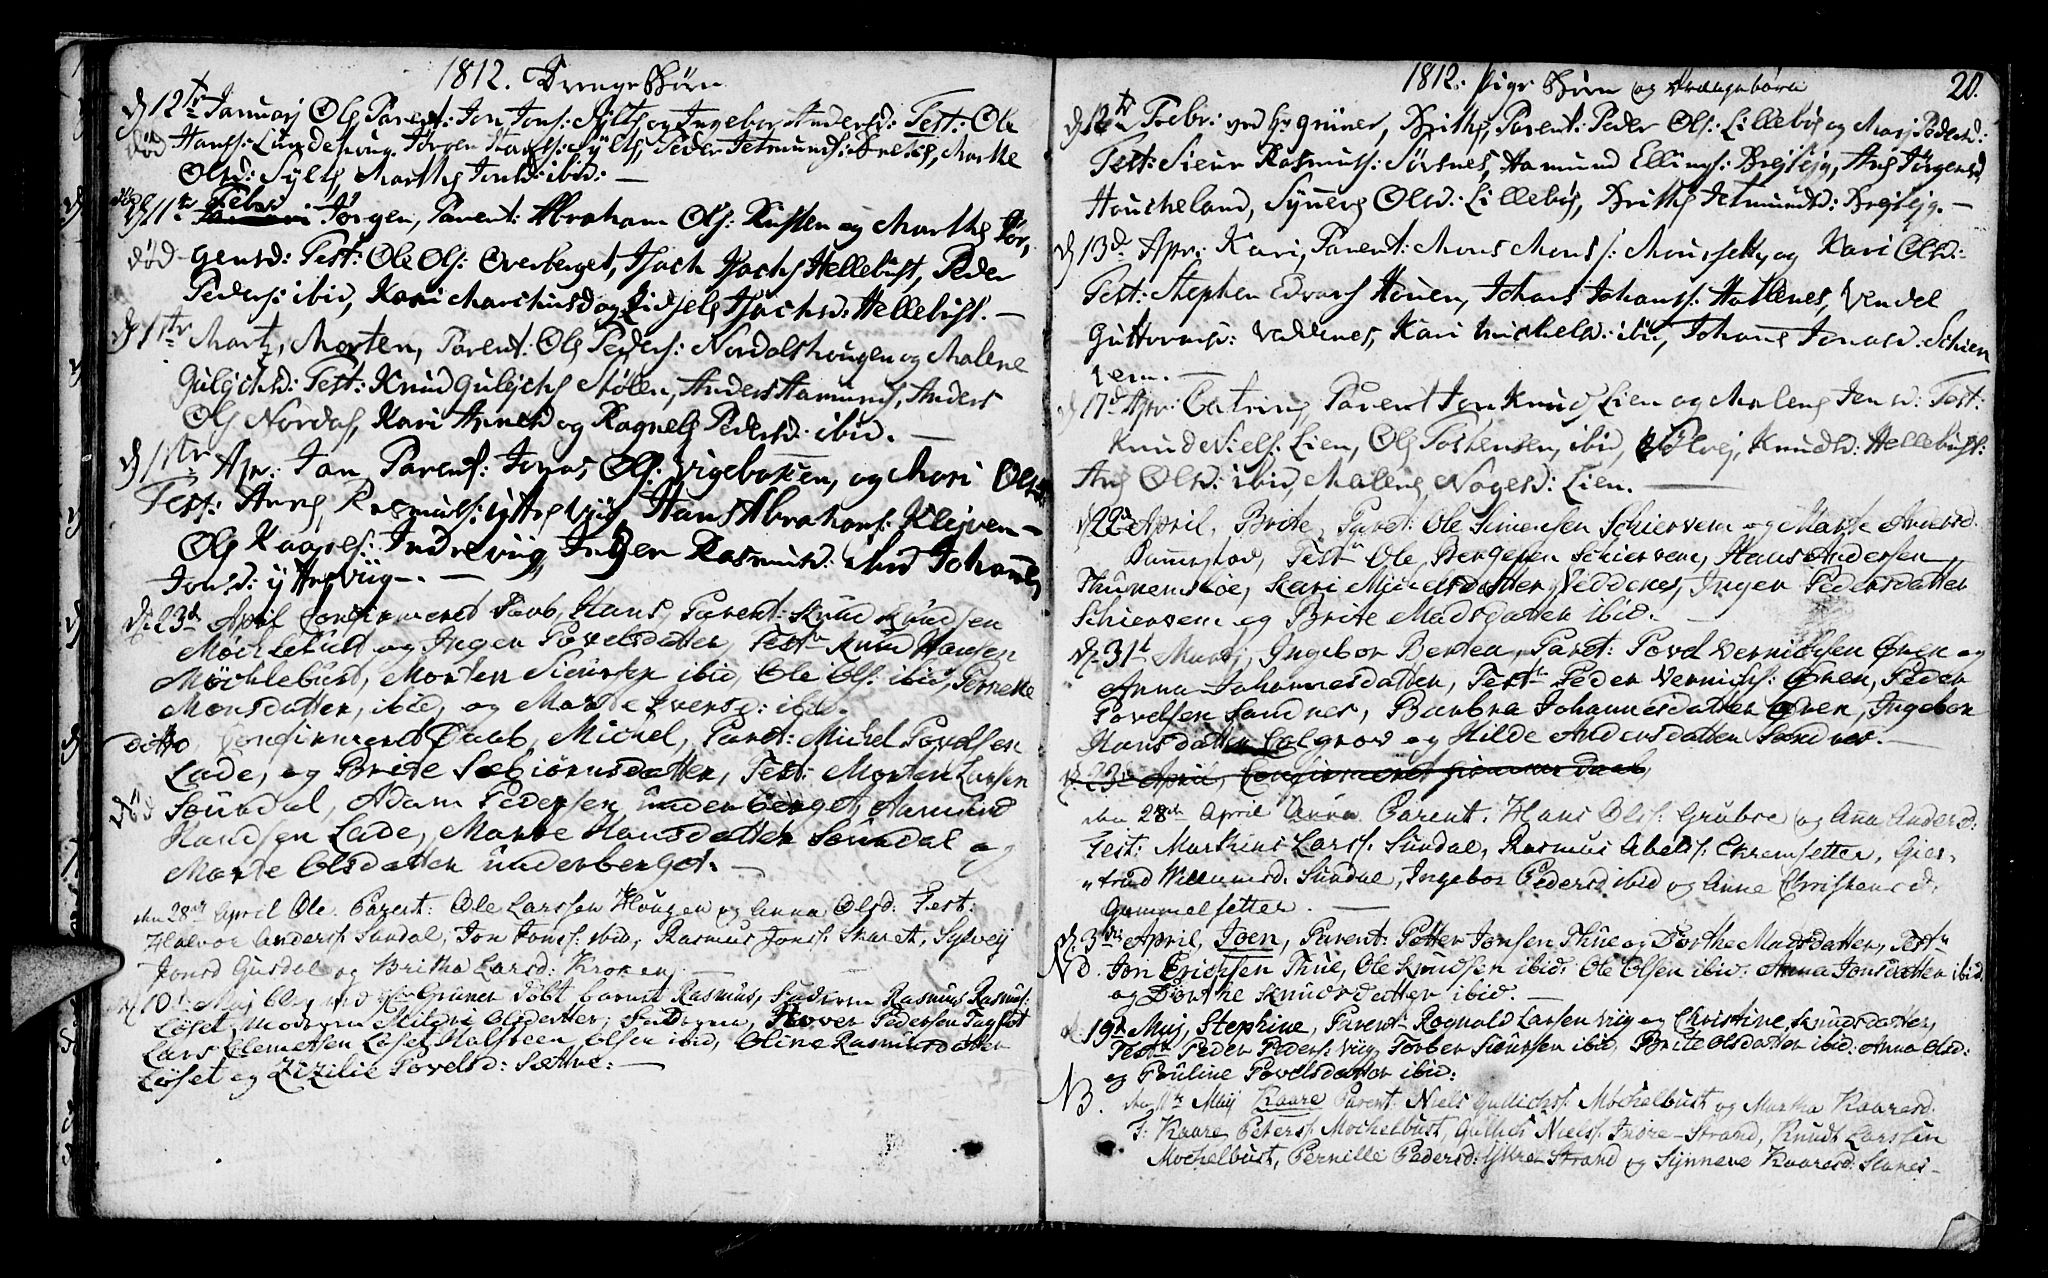 1812. Drenge Börn
d. 12te Januarj Ole, Parent: Jon Jons: Sylte og Ingebor Andersd: Test: Ole
död Hanss: Lundehoug, Jörgen Hanss: Sylte, Peder Jetmunds: Marthe
Olsd: Sylte, Marthe Jonsd: ibid: —
d. 11te Febr: Jörgen, Parent: Abraham Ols: Rusten og Marthe Jör-
död gensd: Test: Ole Ols: Overberget, Isach Isachs Hellebust, Peder
Peders: ibid, Kari Marthinsd og Isachsd: Hellebust. —
d. 1te Martz, Morten, Parent: Ole Peders: Nordalshougen og Malene
Gulichsd: Test: Knud Gulichs Stölen, Anders Aamunds, Anders
Ols Nordal, Kari Arnesd og Ragnele Pedersd: ibid. —
d. 1te Apr: Jon, Parent: Jonas Ols: Vigebakken, og Mari Olsd:
Test: Arne Rasmuss: ytreviig, Hans Abrahams: Klejven —
Ole Ragnels: Indreviig, Inger Rasmusd: Johanne
Jonsd: ytreviig. —
d: 23de April Confirmeret Daab, Hans, Parent: Knud Knudsen
Möchlebust og Inger Povelsdatter, Test Knud Hansen
Möchlebust, Morten Siursen ibid, Ole Ols: ibid, Pernelle
Monsdatter, ibid, og Marte Iversd: ibid.
ditto, Confirmeret Daab, Michel, Parent: Michel Povelsen
Lade, og Brite Sæbiörnsdatter, Test: Morten Larsen
död Soundal, Adam Pedersen Underberget, Aamund
Handsen Lade, Marte Hansdatter Soundal og
Marte Olsdatter Underberget. —
den 28de April Ole. Parent: Ole Larssen Hougen og Anna Olsd: Test:
Halvor Anderss. Sundal, Jon Jonss: ibid, Rasmus Jonss. Skaret, Sylveij
Jonsd Gusdal og Britha Larsd: Kroken
d. 10de Maj blev ved Hr Gruner döbt barnet Rasmus, Faderen Rasmus Rasmus:
Löset, Moderen Mildri Olsdatter, Fadderne, Iver Pedersen Fagset
Lars Clemetsen Löset, Halsteen Olsen ibid, Oline Rasmusdatter
Löset og Zizilie Povelsd: Sætre: —
1812. Pige Börn og drengebörn 20.
d. 12te Febr: ved Hr Grüner, Brithe, Parent: Peder Ols: Lillebö og Marj Pedersd:
Test: Siur Rasmuss: Sörsnes, Aamund Ellings: Brejlejg, Ane Jörgensd
Houcheland, Synneve Olsd: Lillebö, Brithe Jetmundsd: Brejlejg. —
d. 13de Apr: Kari, Parent: Mons Mons: og Kari Olsd:
Test: Stephen Edvars Houen, Johans Johanss: Hallenes, Vendel
Guttormsd: Veddenes, Kari Michelsd: ibid, Johane Jonasd: Schier
vem. —
d. 17de Apr: Catrine, Parent Jon Knuds Lien og Malene Jensd: Test:
Knud Niels: Lien, Ole Tostensen, ibid, Sölvej, Knudsd: Hellebust:
Ane Olsd: ibid, Malene Lien. —
d. 22de April, Brite, Parent: Ole Simensen Schiervem og Marte Andersd.
Test: Ole Bergesen Schiervem, Hans Andersen
Kari Michelsdatter Veddenes, Inger Pedersdatter
Schiervem og Brite Madsdatter ibid. —
d. 31te Martj, Ingebor Bertea, Parent: Povel Vernichsen Ören og
Anna Johannesdatter, Test: Peder Vernichs: Ören, Peder
Povelsen Sandnes, Barbra Johannesdatter Ören, Ingebor
Hansdatter Colgrov og Hilde Andersdatter Sandnes. —
d. 23de April, Confirmeret hiemmedaab
den 28de April Anna Parent. Hans Olss. Grubse og Ana Andersd:
Test: Marthins Larss. Sundal, Rasmus Abels. Ekremsetter, Gier-
trud Willumsd. Sundal, Ingebor Pedersd ibid og Anne Christensd.
Gammelsetter. —
d. 3die April, Joen, Parent: Petter Jonsen Thue og Dorthe Madsdatter, Test
NB. Jon Erichsen Thue, Ole Knudsen ibid: Ole Olsen ibid: Anna Jonsdatter ibid:
og Dorthe Knudsdatter ibid. —
d. 19de Maj, Stephine, Parent Rognald Larsen Viig og Christine Knudsdatter,
Test Peder Peders: Viig, Torber Siursen ibid, Brite Olsdatter ibid: Anna Olsd:
og Pouline Povelsdatter ibid:
NB. den 11te Maij Kaare Parent: Niels Gulichss. Mochelbust og Martha Kaaresd.
T: Kaare Peterss. Mochelbust, Gullich Nielss. Indre-Strand, Knudt Larssen
Mochelbust, Pernille Pedersd: Ytre Strand og Synneve Kaaresd. Slanes —